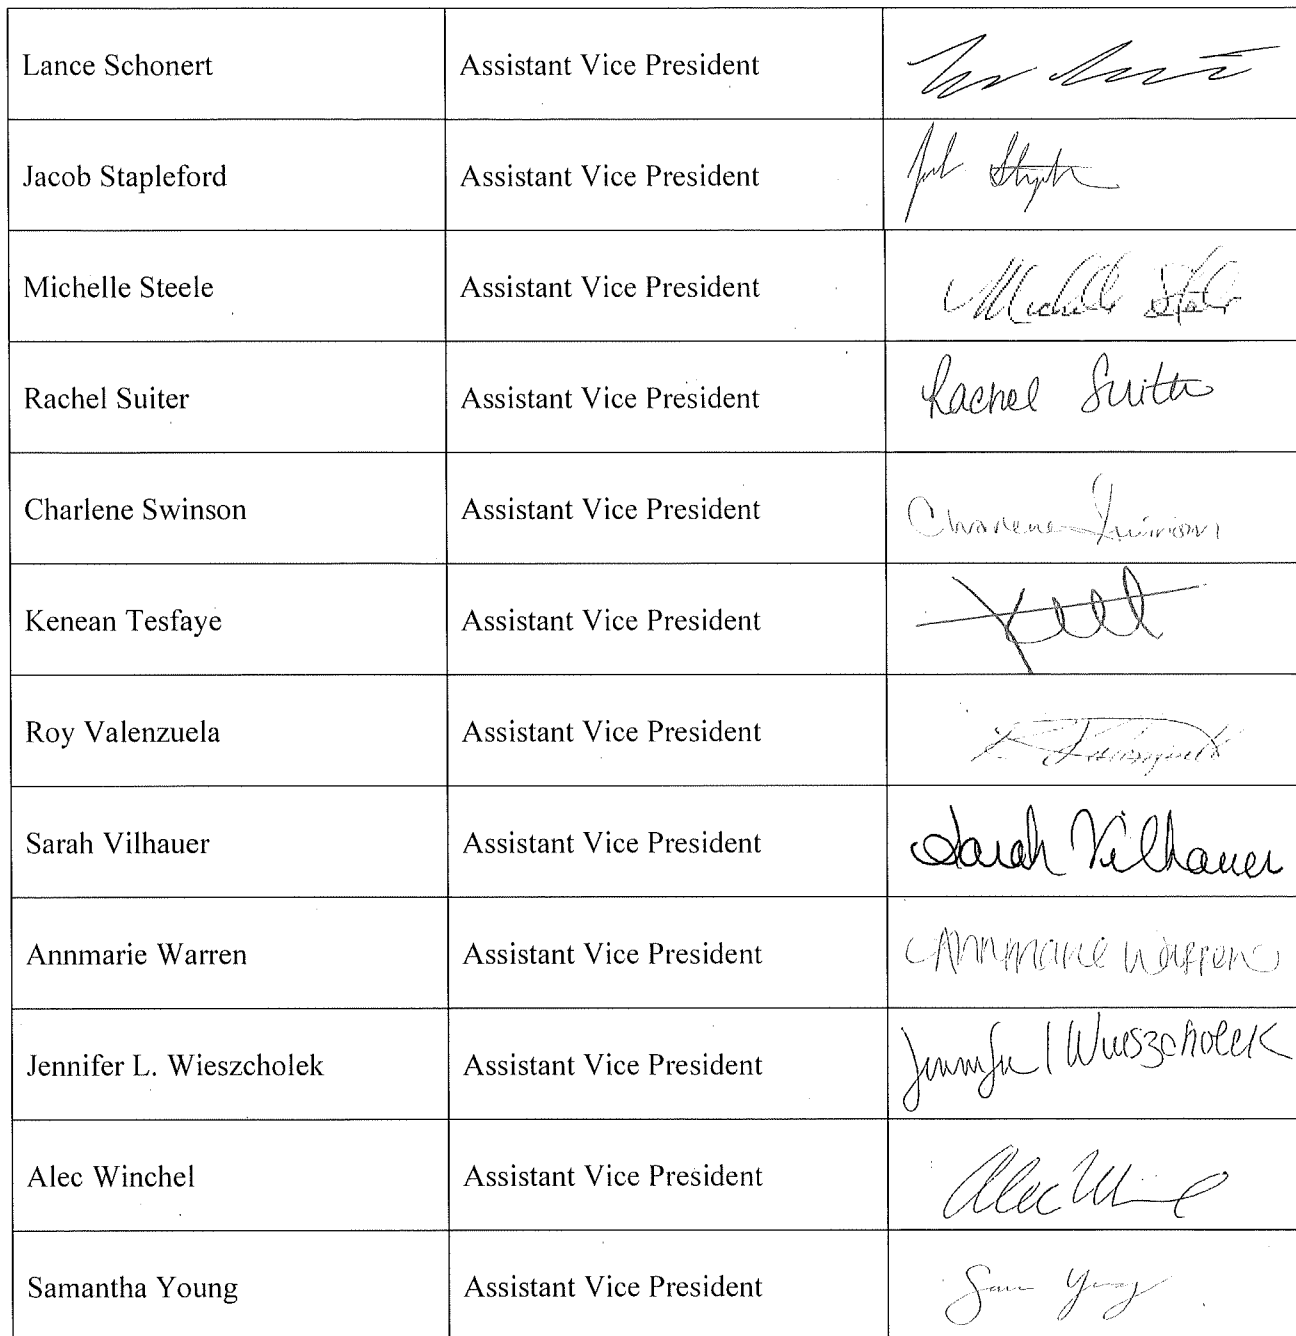 Lance Schonert Assistant Vice President
Jacob Stapleford Assistant Vice President
Michelle Steele Assistant Vice President Michelle Steele
Rachel Suiter Assistant Vice President Rachel Suiter
Charlene Swinson Assistant Vice President Charlene Swinson
Kenean Tesfaye Assistant Vice President
Roy Valenzuela Assistant Vice President
Sarah Vilhauer Assistant Vice President Sarah Vilhauer
Annmarie Warren Assistant Vice President Annmarie Warren
Jennifer L. Wieszcholek Assistant Vice President Jennifer l Wieszcholek
Alec Winchel Assistant Vice President Alec
Samantha Young Assistant Vice President Sam Young